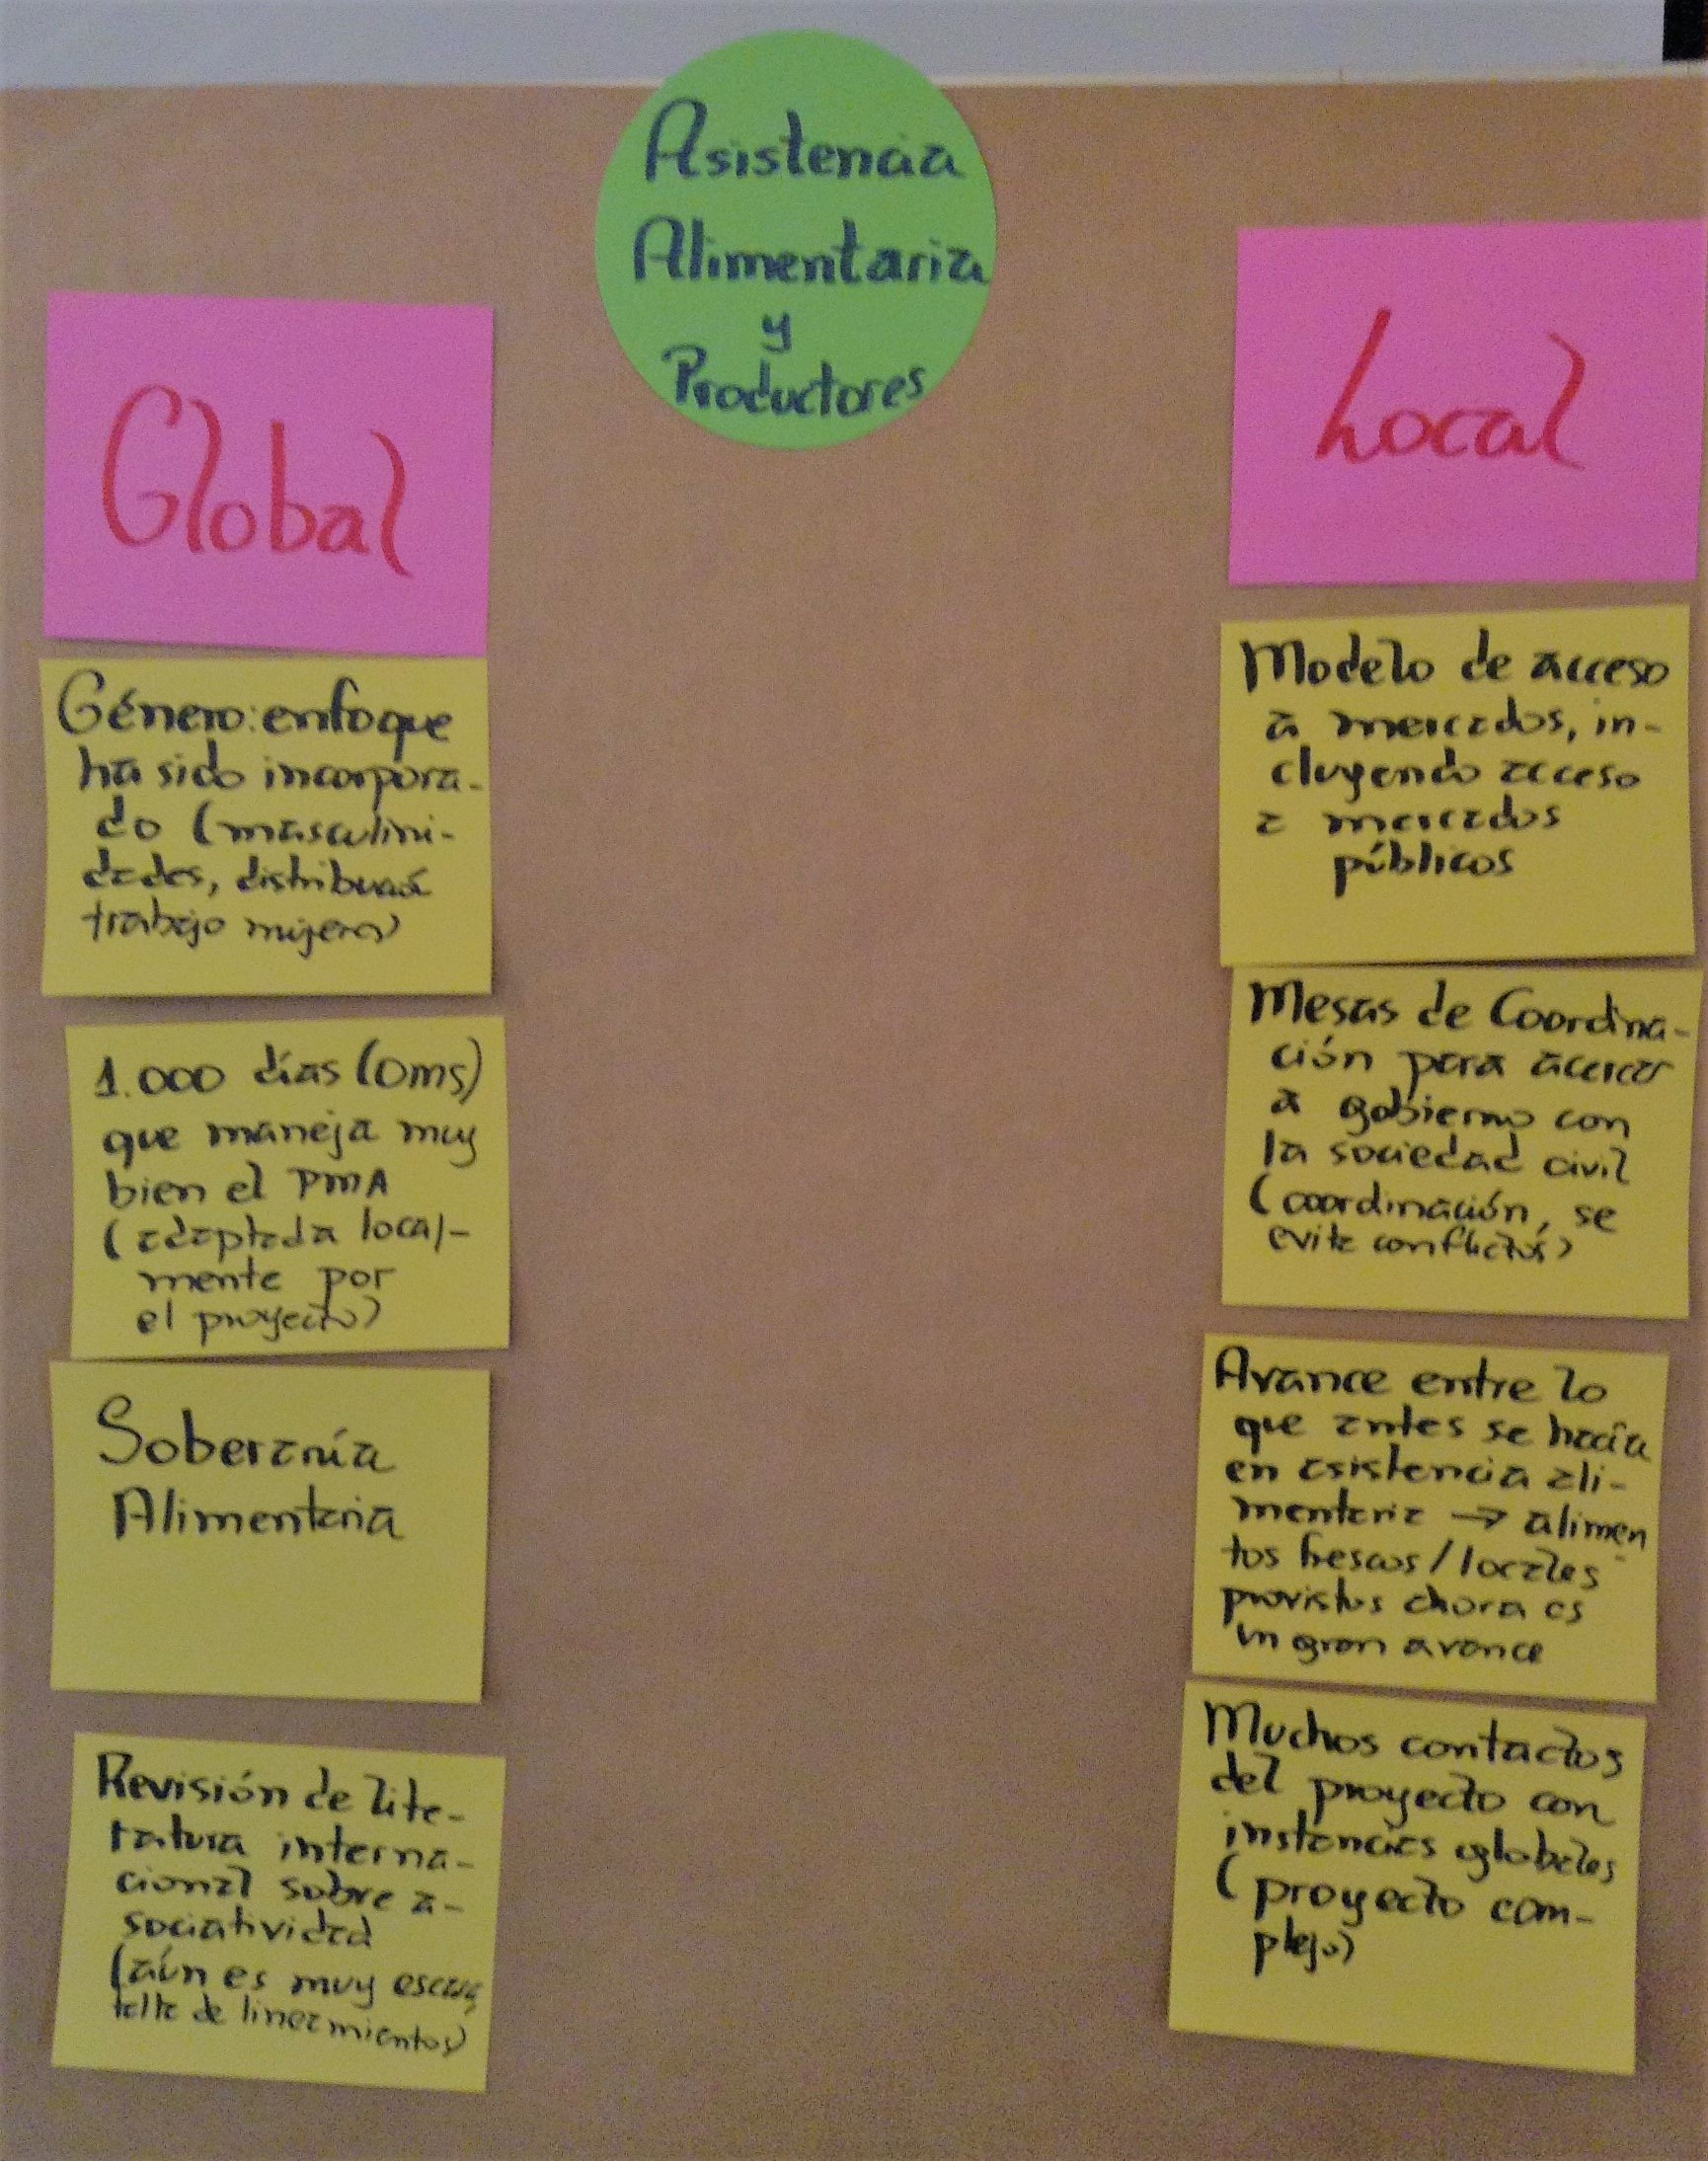 Asistencia
Alimentaria
y
Productores
Global
Género: enfoque
ha sido incorpora-
do (masculini-
dades, distribució
trabajo mujeres)
1.000 días (OMS)
que maneja muy
bien el PMA
(adaptada local-
mente por
el proyecto)
Soberanía
Alimentaria
Revisión de lite-
ratura interna-
cional sobre a-
sociatividad
(aún es muy escasa,
falta de lineamientos)
Local
Modelo de acceso
a mercados, in-
cluyendo acceso
a mercados
públicos
Mesas de Coordina-
ción para acercar
a gobierno con
la sociedad civil
(coordinación, se
evita conflictos)
Avance entre lo
que antes se hacía
en asistencia ali-
mentaria → alimen
tos frescos/locales
provistos ahora es
un gran avance
Muchos contactos
del proyecto con
instancias globales
(proyecto com-
plejo)